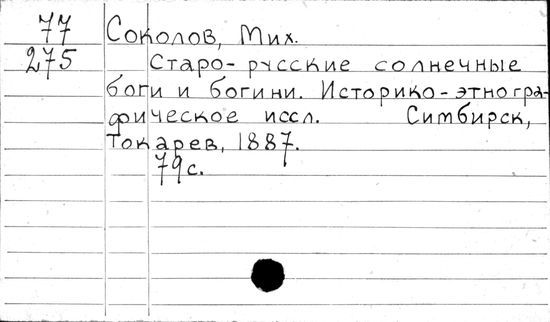 77 Соколов, Мих.
275 Старо-русские солнечные
боги и богини. Историко-этногра-
фическое иссл. Симбирск,
Токарев, 1887.
79с.